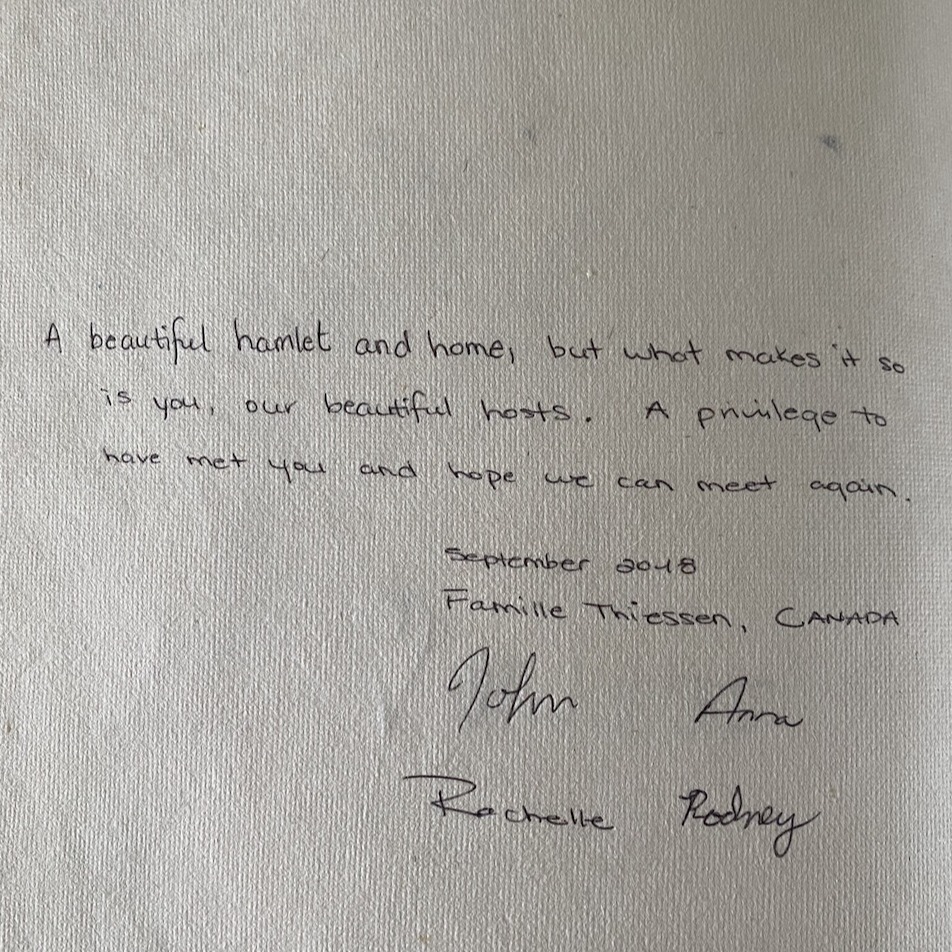 A beautiful hamlet and home, but what makes it so
is you, our beautiful hosts. A privilege to
have met you and hope we can meet again.
September 2018
Famille Thiessen, CANADA
John Anna
Rachelle Rodney